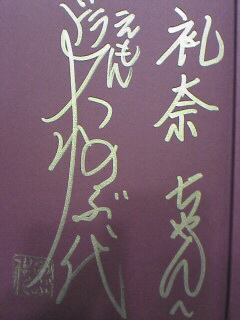 礼奈ちゃんへ
どらえもん
大山のぶ代